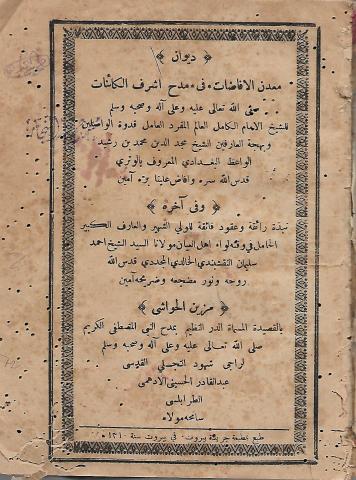 ﴿ ديوان ﴾
معدن الافاضات في مدح اشرف الكائنات
صلى الله تعالى عليه وعلى آله وصحبه وسلم
للشيخ الامام الكامل العالم المفرد العامل قدوة الواصلين
وبهجة العارفين الشيخ مجد الدين محمد بن رشيد
الواعظ البغدادي المعروف بالوتري
قدس الله سره وافاض علينا بره آمين
﴿ وفي آخره ﴾
نبذة رائقة وعقود فائقة للولي الشهير والعارف الكبير
الحامل في وقته لواء اهل العيان مولانا السيد الشيخ احمد
سليمان النقشبندي الخالدي المجددي قدس الله
روحه ونور مضجعه وضريحه آمين
﴿ مزين الحواشي ﴾
بالقصيدة المسماة الدر النظيم بمدح النبي المصطفى الكريم
صلى الله تعالى عليه وعلى آله وصحبه وسلم
لراجي شهود التجلي القدسي
عبدالقادر الحسيني الادهمي
الطرابلسي
سامحه مولاه
طبع بمطبعة جريدة بيروت في بيروت سنة ١٣١٠